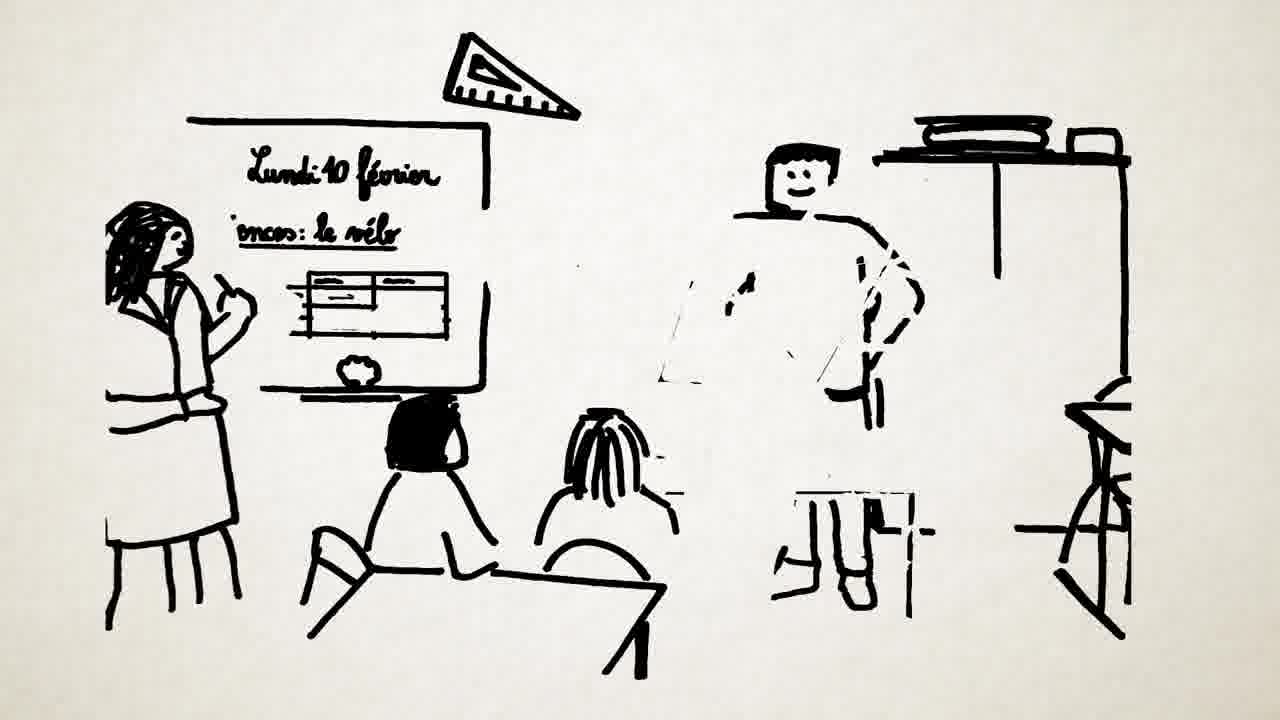 Lundi 10 février
ences: le vélo